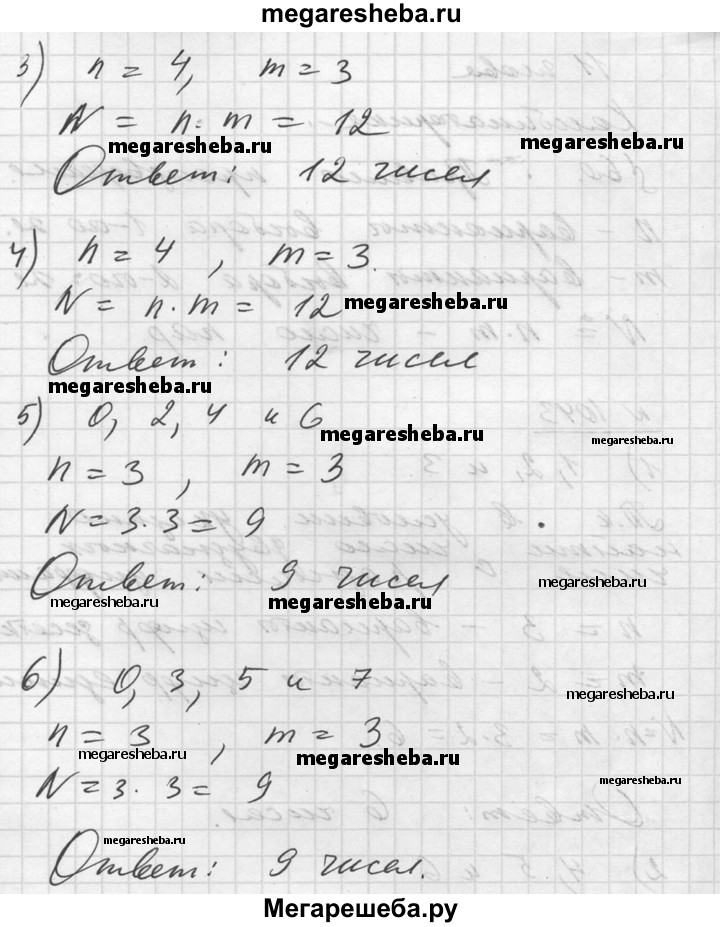 megaresheba.ru
3) n = 4, m = 3
N = n · m = 12
megaresheba.ru megaresheba.ru
Ответ: 12 чисел
4) n = 4, m = 3.
N = n · m = 12 megaresheba.ru
Ответ: 12 чисел
megaresheba.ru
5) 0, 2, 4 и 6
megaresheba.ru megaresheba.ru
n = 3, m = 3
N = 3 · 3 = 9
Ответ: 9 чисел
megaresheba.ru megaresheba.ru megaresheba.ru
6) 0, 3, 5 и 7
megaresheba.ru
n = 3, m = 3
megaresheba.ru megaresheba.ru
N = 3 · 3 = 9
megaresheba.ru
megaresheba.ru
Ответ: 9 чисел.
Мегарешеба.ру